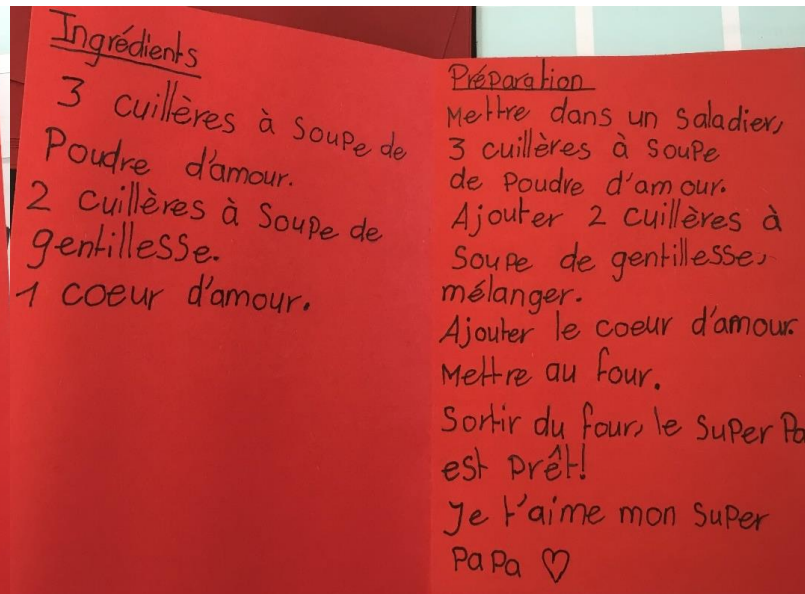 Ingrédients
3 cuillères à soupe de
Poudre d'amour.
2 cuillères à soupe de
gentillesse.
1 coeur d'amour.
Préparation
Mettre dans un saladier,
3 cuillères à soupe
de Poudre d'amour.
Ajouter 2 cuillères à
soupe de gentillesse,
mélanger.
Ajouter le coeur d'amour.
Mettre au four.
Sortir du four, le super Pa
est prêt!
Je t'aime mon super
PaPa ♡